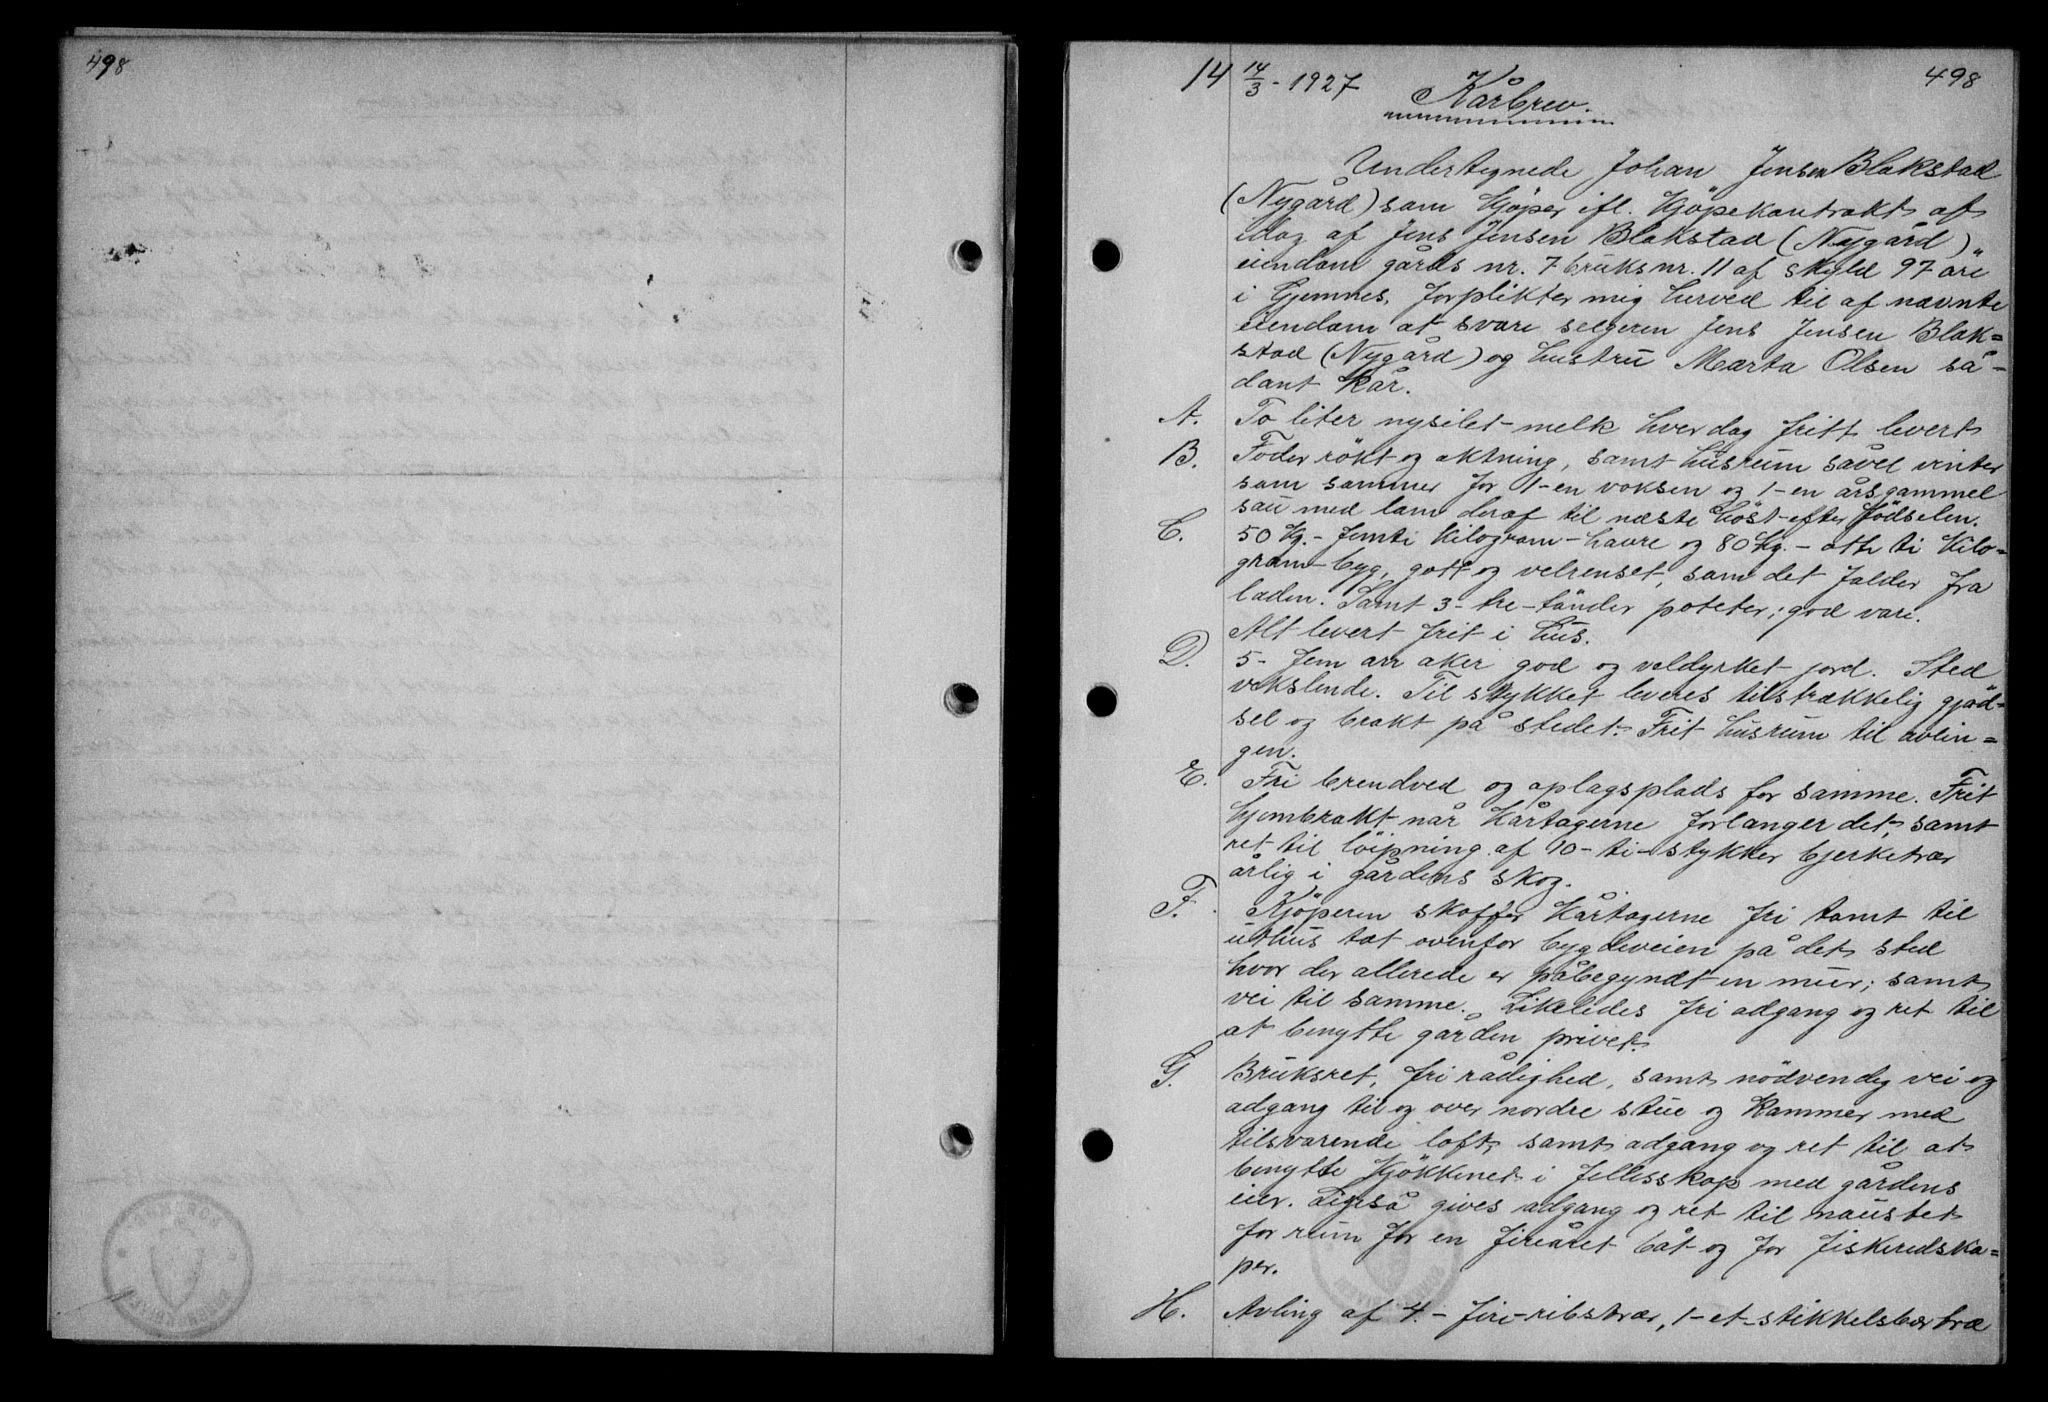 498
14 14/3 - 1927
498
Kårbrev.
Undertegnede Johan Jensen Blakstad
(Nygård) som kjøper ifl. Kjöpekontrakt af
idag af Jens Jensen Blakstad (Nygård)
eiendom gårds nr. 7 bruks nr. 11 af skyld 97 öre
i Gjemnes, forplikter mig herved til af nævnte
eiendom at svare selgeren Jens Jensen Blak=
stad (Nygård) og hustru Marta Olsen så-
dant kår.
A. To liter nysilet melk hver dag fritt levert
B. Foder rökt og aktning, samt husrum såvel vinter
som sommer for 1-en voksen og 1-en årsgammel
sau med lam deraf til næste höst efter födselen.
C. 50 kg. - femti kilogram - havre og 80 kg. - otte ti kilo=
gram byg, gott og velrenset, som det falder fra
laden. Samt 3-tre-tönder poteter; god vare.
Alt levert frit i hus.
D. 5- fem arr aker god og veldyrket jord. Sted
vekslende. Til stykket leveres tilstrækkelig gjöd=
sel og brakt på stedet. Frit husrum til avlin=
gen.
E. Fri brendved og oplagsplads for samme. Frit
hjembrakt når kårtagerne forlanger det, samt
ret til löipning af 10-ti-stykker bjerketrær
årlig i gårdens skog.
F. Kjöperen skaffer kårtagerne fri tomt til
uthus tæt ovenfor bygdeveien på det sted
hvor der allerede er påbegyndt en mur; samt
vei til samme. Likeledes fri adgang og ret til
at benytte gården privet.
G. Bruksret, fri rådighed, samt nödvendig vei og
adgang til og over nordre stue og kammer med
tilsvarende loft, samt adgang og ret til at
benytte kjökkenet i fellesskap med gårdens
eier. Ligeså gives adgang og ret til naustet
for rum for en fireåret båt og for fiskeredska=
per.
H. Avling af 4.- fire-ribstrær, 1-et-stikkelsbærtræ